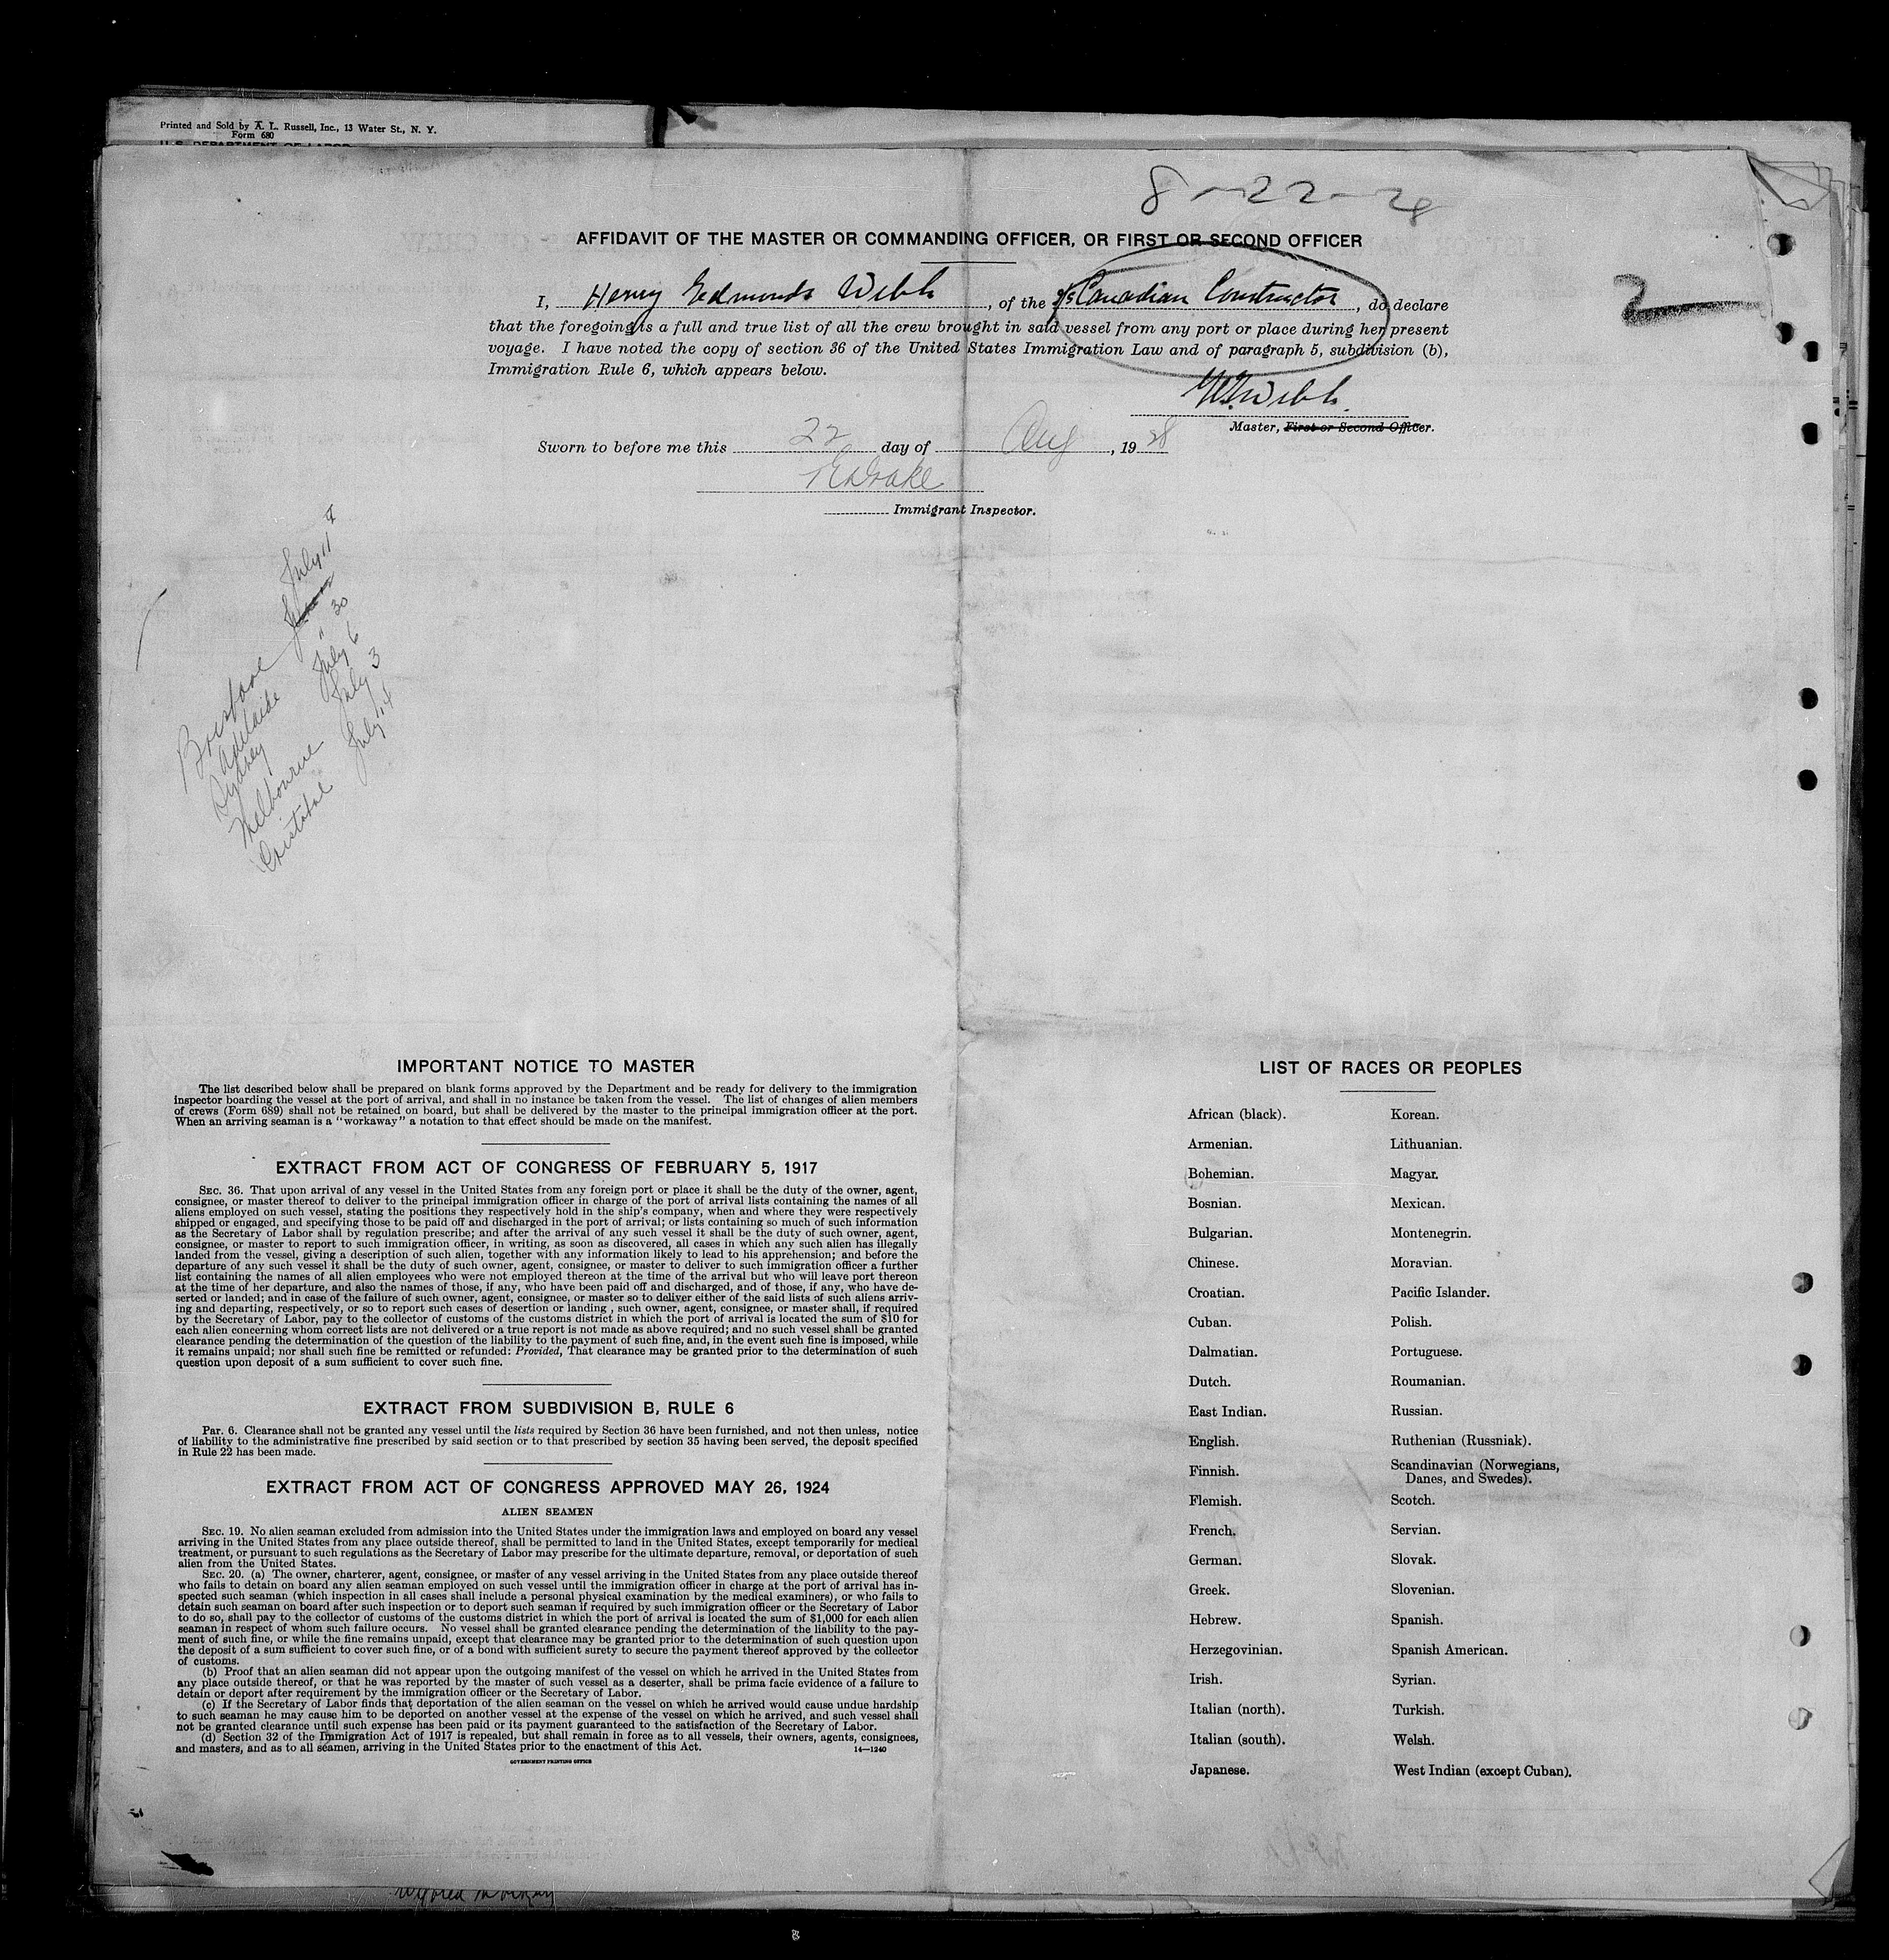 Printed and Sold by A. L. Russell, Inc., 13 Water St., N. Y.
Form 680
U. S. DEPARTMENT OF LABOR
8-22-28
AFFIDAVIT OF THE MASTER OR COMMANDING OFFICER, OR FIRST OR SECOND OFFICER
I, Henry Edmonds Webb, of the SS Canadian Constructor, do declare
that the foregoing is a full and true list of all the crew brought in said vessel from any port or place during her present
voyage. I have noted the copy of section 36 of the United States Immigration Law and of paragraph 5, subdivision (b),
Immigration Rule 6, which appears below.
2
Webb.
Master, First or Second Officer.
Sworn to before me this 22 day of Aug, 1928
Drake
Immigrant Inspector.
Brisbane July 11
Adelaide " 30
Sydney July 6
Melbourne July 3
Cristobal July 14
IMPORTANT NOTICE TO MASTER
The list described below shall be prepared on blank forms approved by the Department and be ready for delivery to the immigration
inspector boarding the vessel at the port of arrival, and shall in no instance be taken from the vessel. The list of changes of alien members
of crews (Form 689) shall not be retained on board, but shall be delivered by the master to the principal immigration officer at the port.
When an arriving seaman is a "workaway" a notation to that effect should be made on the manifest.
EXTRACT FROM ACT OF CONGRESS OF FEBRUARY 5, 1917
SEC. 36. That upon arrival of any vessel in the United States from any foreign port or place it shall be the duty of the owner, agent,
consignee, or master thereof to deliver to the principal immigration officer in charge of the port of arrival lists containing the names of all
aliens employed on such vessel, stating the positions they respectively hold in the ship's company, when and where they were respectively
shipped or engaged, and specifying those to be paid off and discharged in the port of arrival; or lists containing so much of such information
as the Secretary of Labor shall by regulation prescribe; and after the arrival of any such vessel it shall be the duty of such owner, agent,
consignee, or master to report to such immigration officer, in writing, as soon as discovered, all cases in which any such alien has illegally
landed from the vessel, giving a description of such alien, together with any information likely to lead to his apprehension; and before the
departure of any such vessel it shall be the duty of such owner, agent, consignee, or master to deliver to such immigration officer a further
list containing the names of all alien employees who were not employed thereon at the time of the arrival but who will leave port thereon
at the time of her departure, and also the names of those, if any, who have been paid off and discharged, and of those, if any, who have de-
serted or landed; and in case of the failure of such owner, agent, consignee, or master so to deliver either of the said lists of such aliens arriv-
ing and departing, respectively, or so to report such cases of desertion or landing , such owner, agent, consignee, or master shall, if required
by the Secretary of Labor, pay to the collector of customs of the customs district in which the port of arrival is located the sum of $10 for
each alien concerning whom correct lists are not delivered or a true report is not made as above required; and no such vessel shall be granted
clearance pending the determination of the question of the liability to the payment of such fine, and, in the event such fine is imposed, while
it remains unpaid; nor shall such fine be remitted or refunded: Provided, That clearance may be granted prior to the determination of such
question upon deposit of a sum sufficient to cover such fine.
EXTRACT FROM SUBDIVISION B, RULE 6
Par. 6. Clearance shall not be granted any vessel until the lists required by Section 36 have been furnished, and not then unless, notice
of liability to the administrative fine prescribed by said section or to that prescribed by section 35 having been served, the deposit specified
in Rule 22 has been made.
EXTRACT FROM ACT OF CONGRESS APPROVED MAY 26, 1924
ALIEN SEAMEN
SEC. 19. No alien seaman excluded from admission into the United States under the immigration laws and employed on board any vessel
arriving in the United States from any place outside thereof, shall be permitted to land in the United States, except temporarily for medical
treatment, or pursuant to such regulations as the Secretary of Labor may prescribe for the ultimate departure, removal, or deportation of such
alien from the United States.
SEC. 20. (a) The owner, charterer, agent, consignee, or master of any vessel arriving in the United States from any place outside thereof
who fails to detain on board any alien seaman employed on such vessel until the immigration officer in charge at the port of arrival has in-
spected such seaman (which inspection in all cases shall include a personal physical examination by the medical examiners), or who fails to
detain such seaman on board after such inspection or to deport such seaman if required by such immigration officer or the Secretary of Labor
to do so, shall pay to the collector of customs of the customs district in which the port of arrival is located the sum of $1,000 for each alien
seaman in respect of whom such failure occurs. No vessel shall be granted clearance pending the determination of the liability to the pay-
ment of such fine, or while the fine remains unpaid, except that clearance may be granted prior to the determination of such question upon
the deposit of a sum sufficient to cover such fine, or of a bond with sufficient surety to secure the payment thereof approved by the collector
of customs.
(b) Proof that an alien seaman did not appear upon the outgoing manifest of the vessel on which he arrived in the United States from
any place outside thereof, or that he was reported by the master of such vessel as a deserter, shall be prima facie evidence of a failure to
detain or deport after requirement by the immigration officer or the Secretary of Labor.
(c) If the Secretary of Labor finds that deportation of the alien seaman on the vessel on which he arrived would cause undue hardship
to such seaman he may cause him to be deported on another vessel at the expense of the vessel on which he arrived, and such vessel shall
not be granted clearance until such expense has been paid or its payment guaranteed to the satisfaction of the Secretary of Labor.
(d) Section 32 of the Immigration Act of 1917 is repealed, but shall remain in force as to all vessels, their owners, agents, consignees,
and masters, and as to all seamen, arriving in the United States prior to the enactment of this Act.
14—1240
GOVERNMENT PRINTING OFFICE
LIST OF RACES OR PEOPLES
African (black). Korean.
Armenian. Lithuanian.
Bohemian. Magyar.
Bosnian. Mexican.
Bulgarian. Montenegrin.
Chinese. Moravian.
Croatian. Pacific Islander.
Cuban. Polish.
Dalmatian. Portuguese.
Dutch. Roumanian.
East Indian. Russian.
English. Ruthenian (Russniak).
Finnish. Scandinavian (Norwegians,
Danes, and Swedes).
Flemish. Scotch.
French. Servian.
German. Slovak.
Greek. Slovenian.
Hebrew. Spanish.
Herzegovinian. Spanish American.
Irish. Syrian.
Italian (north). Turkish.
Italian (south). Welsh.
Japanese. West Indian (except Cuban).